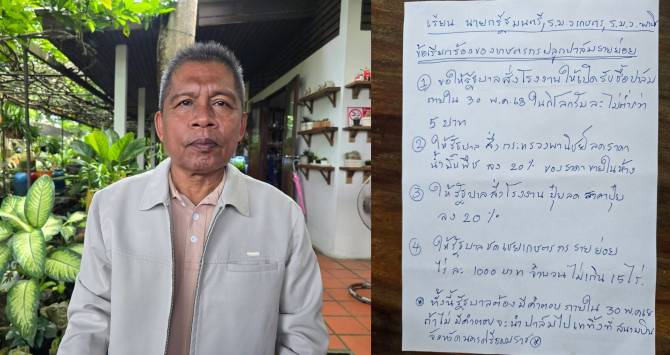 เรียน นายกรัฐมนตรี, ร.ม.ว เกษตร, ร.ม.ว. พาณิ
ข้อเรียกร้องของเกษตรกรปลูกปาล์มรายย่อย
① ขอให้รัฐบาลสั่งโรงงานให้เปิดรับซื้อปาล์ม
ภายใน 30 พ.ค. 68 ในกิโลกรัมละไม่ต่ำกว่า
5 บาท
② ให้รัฐบาลสั่งกระทรวงพาณิชย์ลดราคา
น้ำมันพืช ลง 20% ของราคาขายในห้าง
③ ให้รัฐบาลสั่งโรงงานปุ๋ยลดราคาปุ๋ย
ลง 20%
④ ให้รัฐบาลชดเชยเกษตรกรรายย่อย
ไร่ละ 1000 บาท จำนวนไม่เกิน 15 ไร่.
* ทั้งนี้รัฐบาลต้องมีคำตอบภายใน 30 พ.ค. 68
ถ้าไม่มีคำตอบจะนำปาล์มไปเททิ้งที่สนามบิน
จังหวัดนครศรีธรรมราช *